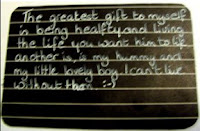 The greatest gift to myself
is being healfty and living
the life you want him to life
another is, is my mummy and
my little lovely boy. I can't live
without them :-)